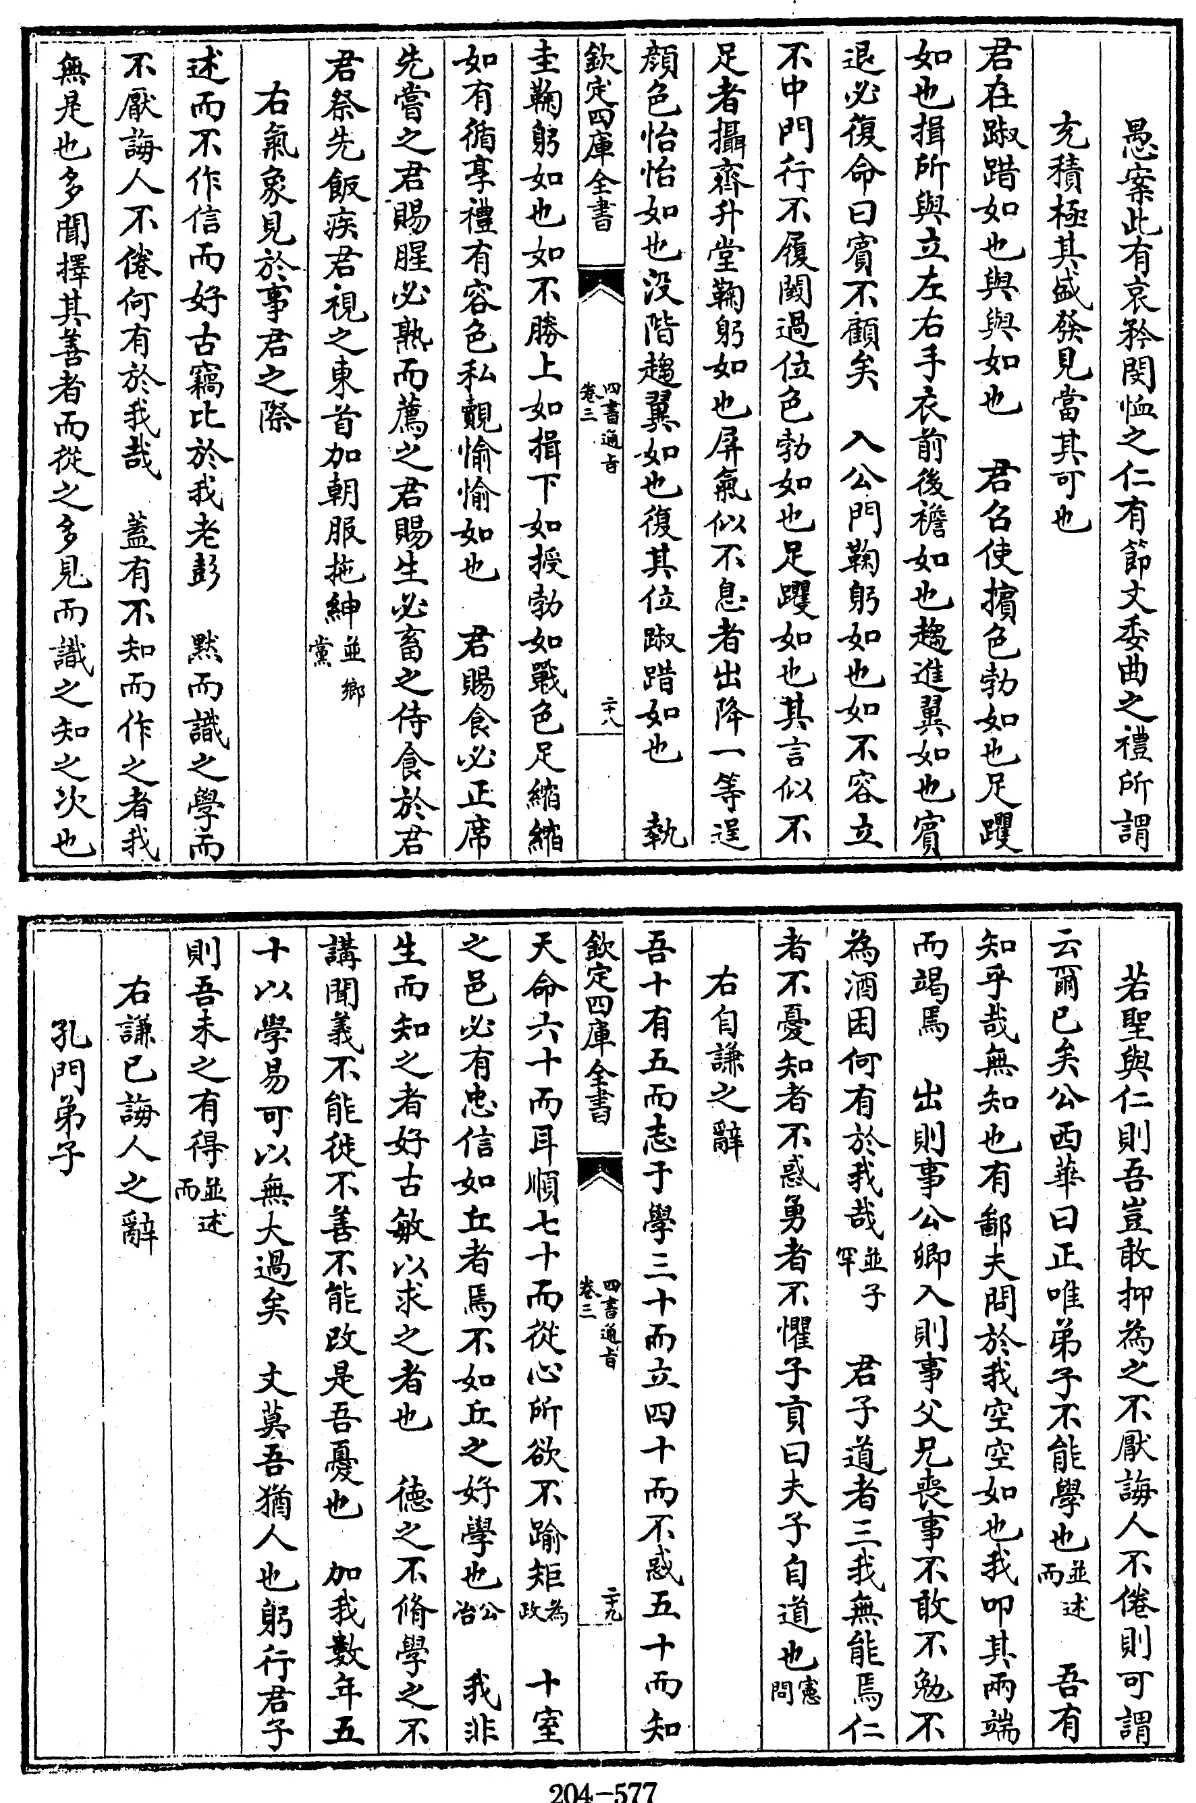 愚案此有哀矜閔恤之仁有節文委曲之禮所謂
充積極其盛發見當其可也
君在踧踖如也與與如也　君召使擯色勃如也足躩
如也揖所與立左右手衣前後襜如也趨進翼如也賓
退必復命曰賓不顧矣　入公門鞠躬如也如不容立
不中門行不履閾過位色勃如也足躩如也其言似不
足者攝齊升堂鞠躬如也屏氣似不息者出降一等逞
顔色怡怡如也没階趨翼如也復其位踧踖如也　執
欽定四庫全書
四書通旨
卷三
二十八
圭鞠躬如也如不勝上如揖下如授勃如戰色足縮縮
如有循享禮有容色私覿愉愉如也　君賜食必正席
先嘗之君賜腥必熟而薦之君賜生必畜之侍食於君
君祭先飯疾君視之東首加朝服拖紳並鄉黨
右氣象見於事君之際
述而不作信而好古竊比於我老彭　黙而識之學而
不厭誨人不倦何有於我哉　蓋有不知而作之者我
無是也多聞擇其善者而從之多見而識之知之次也
若聖與仁則吾豈敢抑為之不厭誨人不倦則可謂
云爾已矣公西華曰正唯弟子不能學也並述而　吾有
知乎哉無知也有鄙夫問於我空空如也我叩其兩端
而竭焉　出則事公卿入則事父兄喪事不敢不勉不
為酒困何有於我哉並子罕　君子道者三我無能焉仁
者不憂知者不惑勇者不懼子貢曰夫子自道也憲問
右自謙之辭
吾十有五而志于學三十而立四十而不惑五十而知
欽定四庫全書
四書通旨
卷三
二十九
天命六十而耳順七十而從心所欲不踰矩為政　十室
之邑必有忠信如丘者焉不如丘之好學也公冶　我非
生而知之者好古敏以求之者也　德之不脩學之不
講聞義不能徙不善不能改是吾憂也　加我數年五
十以學易可以無大過矣　文莫吾猶人也躬行君子
則吾未之有得並述而
右謙已誨人之辭
孔門弟子
204-577